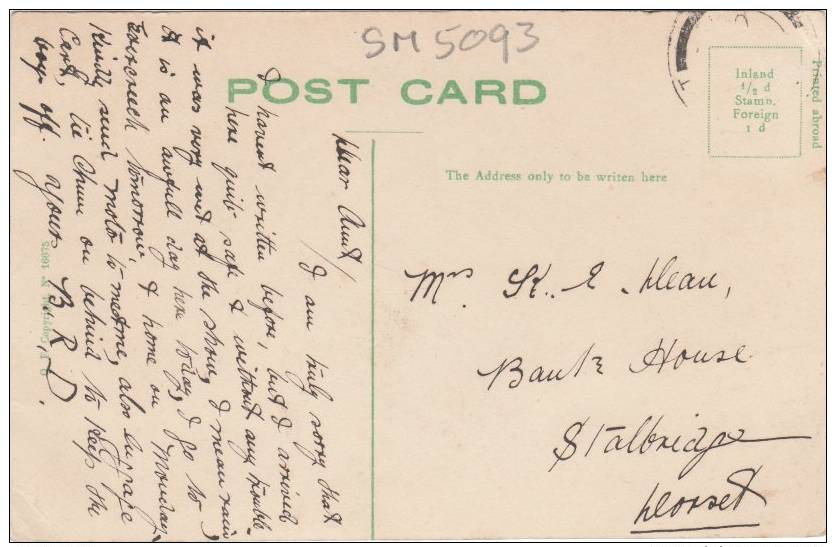 SM 5093
POST CARD
Inland
1/2 d
Stamp.
Foreign
1 d
Printed abroad
The Address only to be writen here
Dear Aunt/
I am truly sorry that
I havent written before, but I arrived
here quite safe & without any trouble
it was very wet at the show, I mean rain
it is an awfull day here today, I go to
Evercreech tomorrow, & home on Monday,
Kindly send moto to meet me, also
Cert, tie Chum on behind to keep the
boys off. Yours B.R.D.
Mrs K. E. Dean,
Bank House
Stalbridge
Dorset